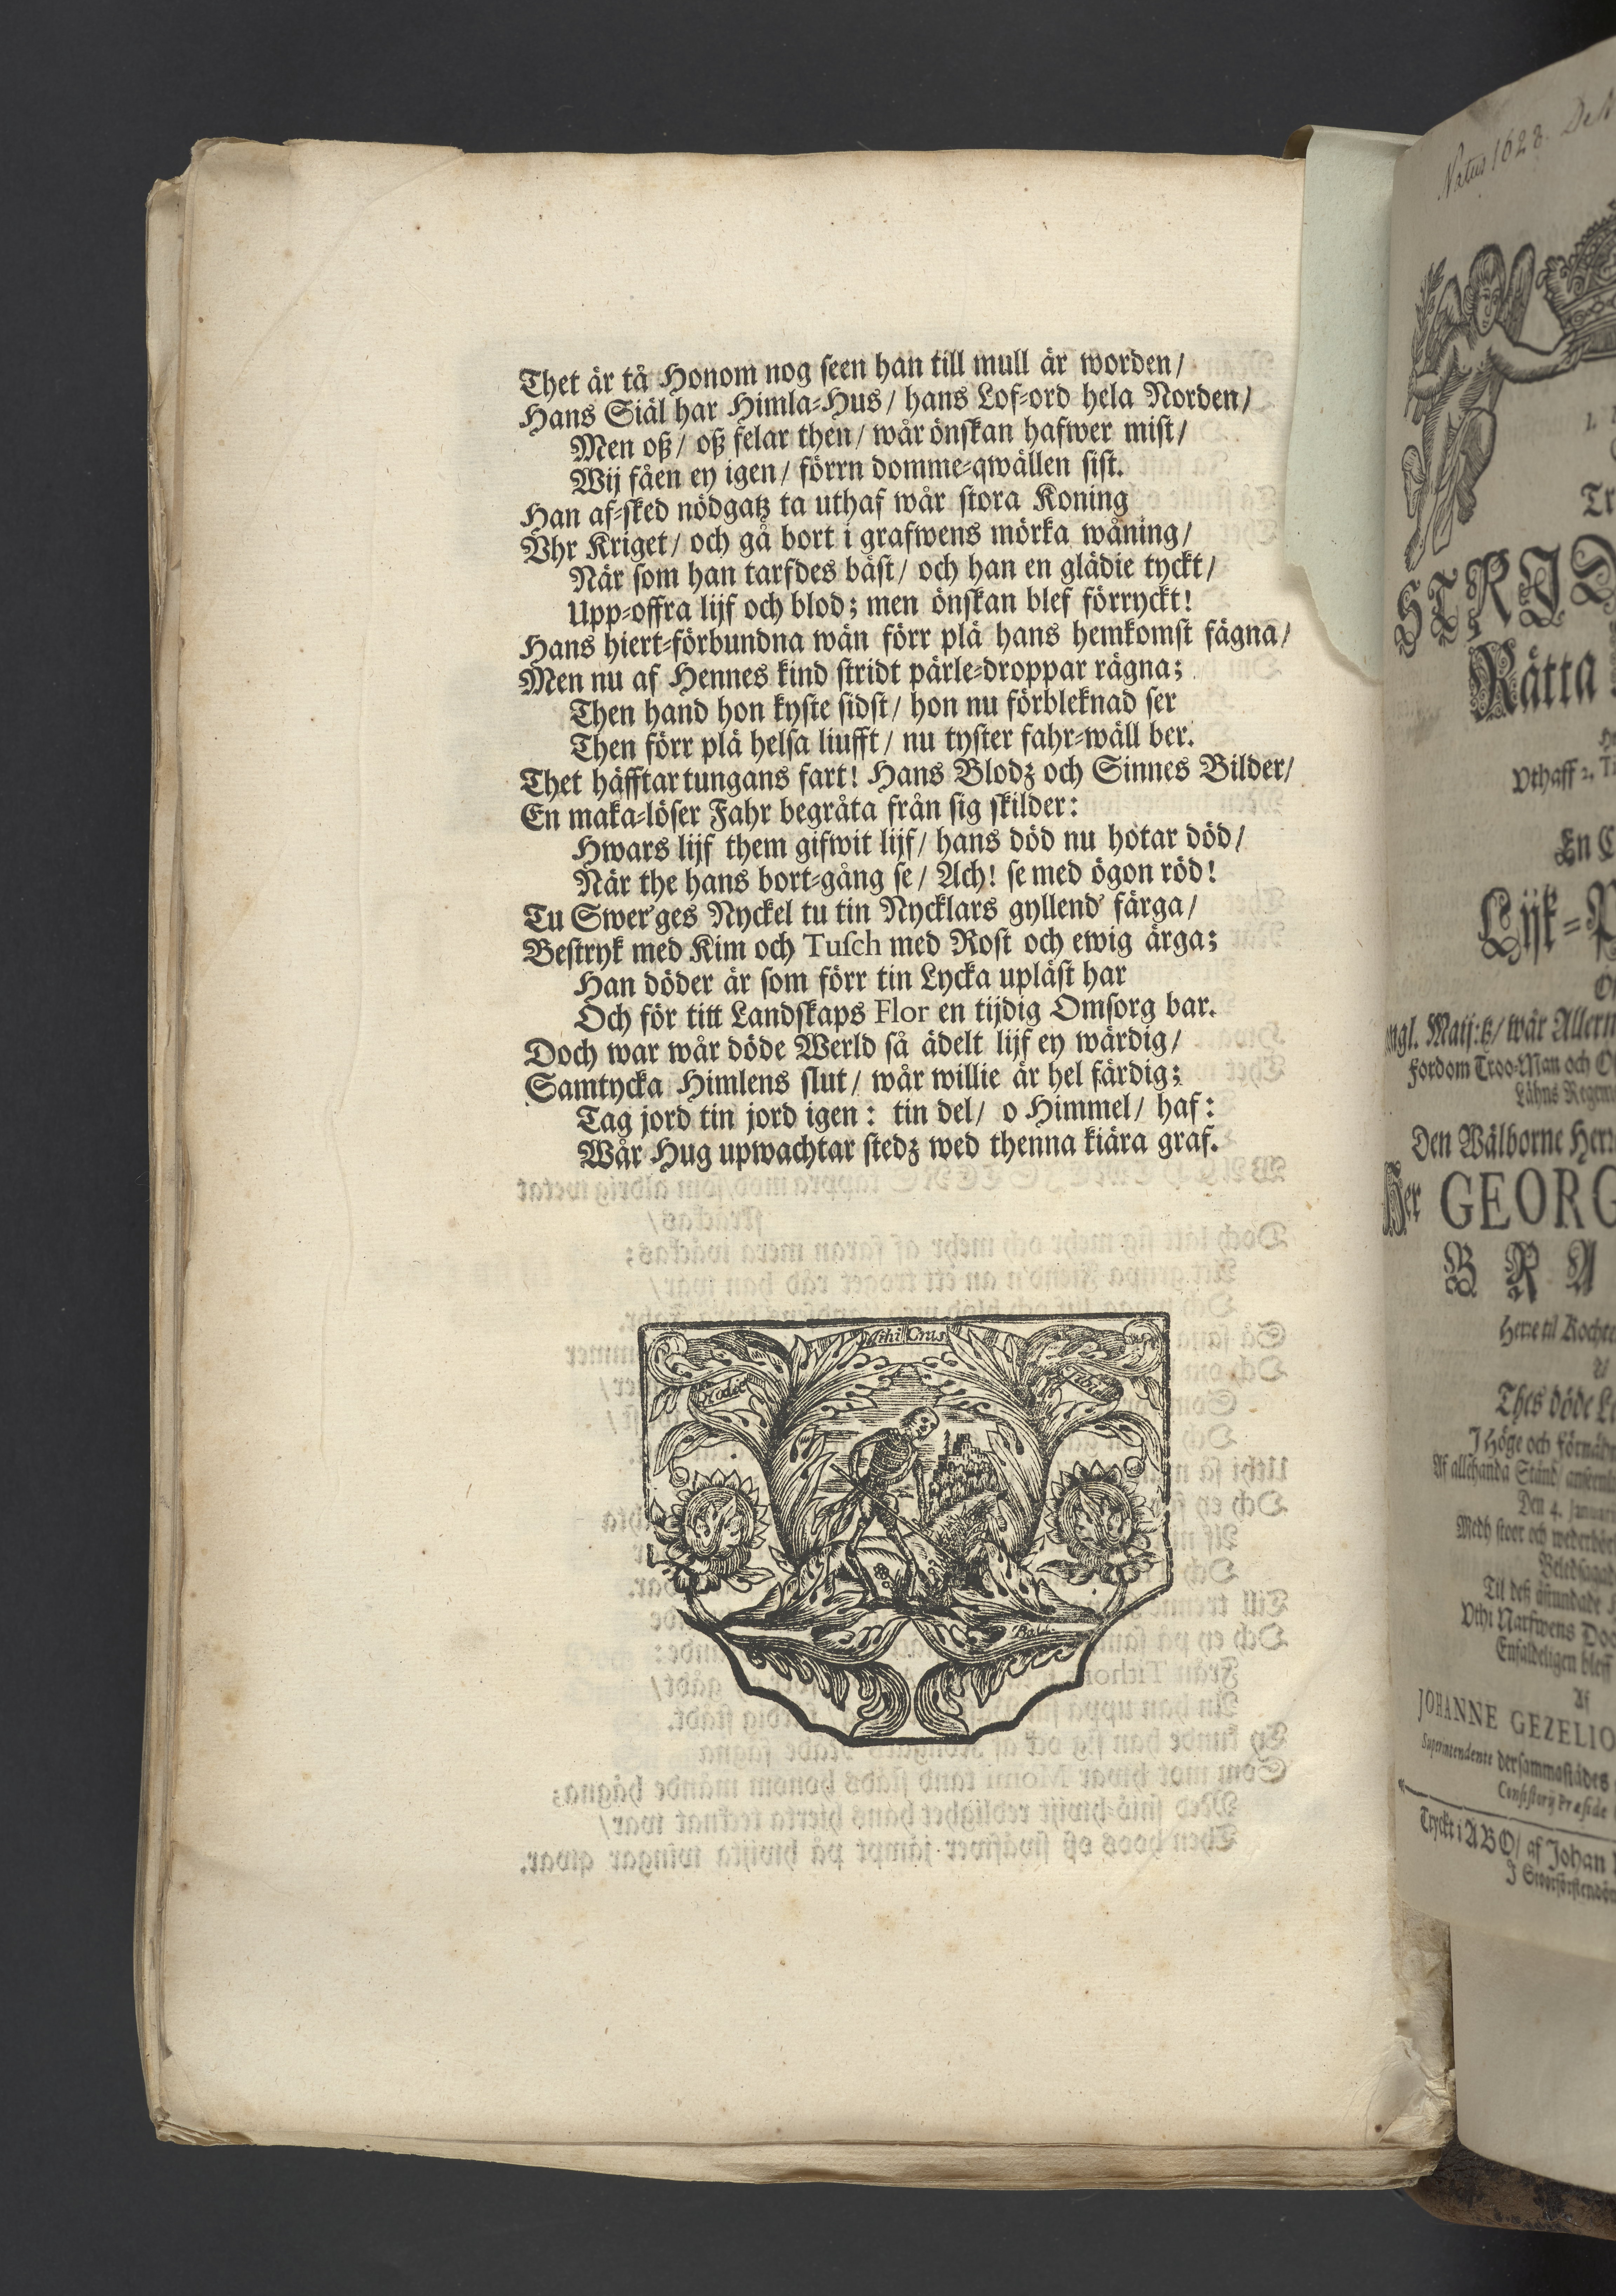 Thet är tå Honom nog seen han till mull är worden/
Hans Siäl har Himla-Hus/ hans Lof-ord hela Norden/
Men oß/ oß felar then/ wår önskan hafwer mist/
Wij fåen ey igen/ förrn domme-qwällen sist.
Han af-sked nödgatz ta uthaf wår stora Koning
Vhr Kriget/ och gå bort i grafwens mörka wåning/
När som han tarfdes bäst/ och han en glädie tyckt/
Upp-offra lijf och blod; men önskan blef förryckt!
Hans hiert-förbundna wän förr plä hans hemkomst fägna/
Men nu af Hennes kind stridt pärle-droppar rägna;
Then hand hon kyste sidst/ hon nu förbleknad ser
Then förr plä helsa liufft/ nu tyster fahr-wäll ber.
Thet häfftar tungans fart! Hans Blodz och Sinnes Bilder/
En maka-löser Fahr begråta från sig skilder:
Hwars lijf them gifwit lijf/ hans död nu hotar död/
När the hans bort-gång se/ Ach! se med ögon röd!
Tu Swer'ges Nyckel tu tin Nycklars gyllend' färga/
Bestryk med Kim och Tusch med Rost och ewig ärga;
Han döder är som förr tin Lycka upläst har
Och för titt Landskaps Flor en tijdig Omsorg bar.
Doch war wår döde Werld så ädelt lijf ey wärdig/
Samtycka Himlens slut/ wår willie är hel färdig;
Tag jord tin jord igen: tin del/ o Himmel/ haf:
Wår Hug upwachtar stedz wed thenna kiära graf.
Hodie Mihi Cras Tibi
Natus 1628.
Rätta
Vthaff 2. Ti
En C
Lijk-P
ngl. Maij:tz/ wår Allern
fordom Troo-Man och
Lähns Regem
Den Wälborne Herr
Her GEORG
B R A
Herre til
Thes döde L
J Höge och
Af allehanda Stånd/
Den 4. Januarij
Medh stoer och
Vthi Narfwens Doo
Enfaldeligen bleff
Af
JOHANNE GEZELIO
Superintendente dersammastädes
Consistorij Præside
Tryckt i ABO/ af Johan